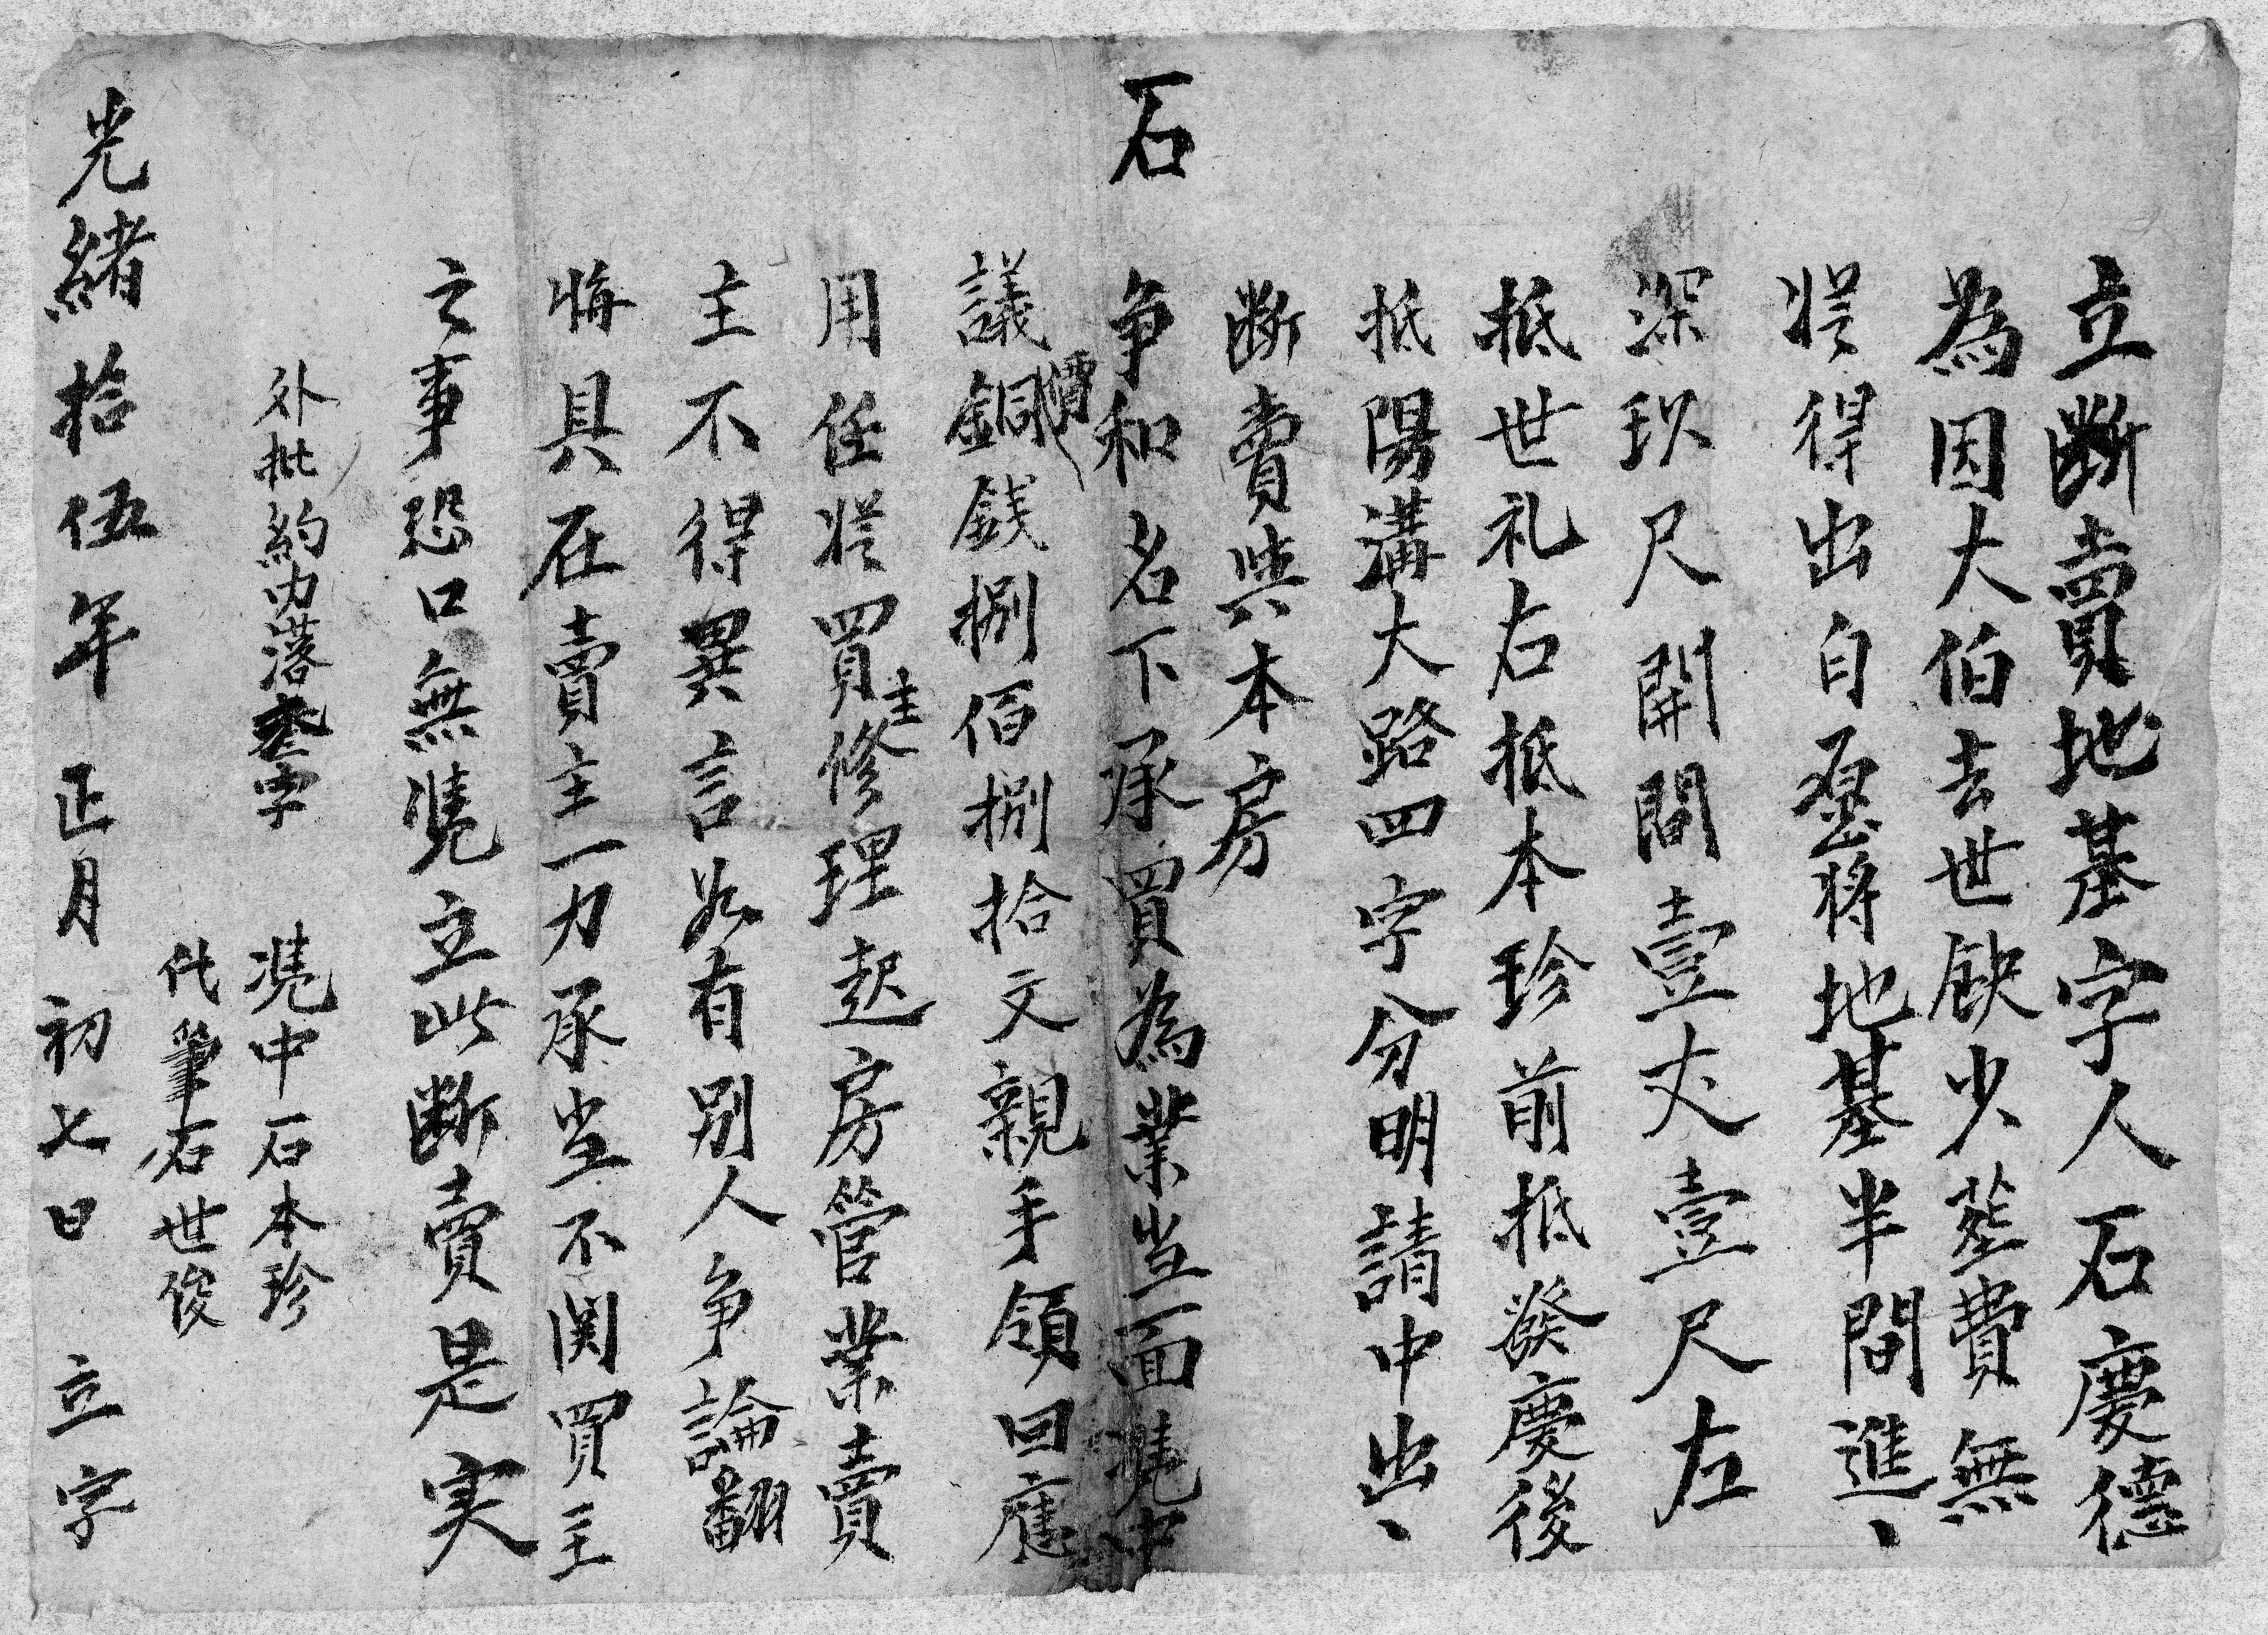 立断賣地基字人石慶德
為因大伯去世缺少葬費無
從得出自愿將地基半間進、
深玖尺開間壹丈壹尺左
抵世礼右抵本珍前抵發慶後
抵陽溝大路四字分明請中出、
断賣與本房
石
争和名下承買為業当面凴中
議價銅銭捌佰捌拾文親手領回應
用任從買主修理起房管業賣
主不得異言如有别人争論翻
悔具在賣主一力承当不関買主
之事恐口無凴立此断賣是実
外批約内落叁字
凴中石本珍
代筆石世俊
光緒拾伍年正月初七日立字